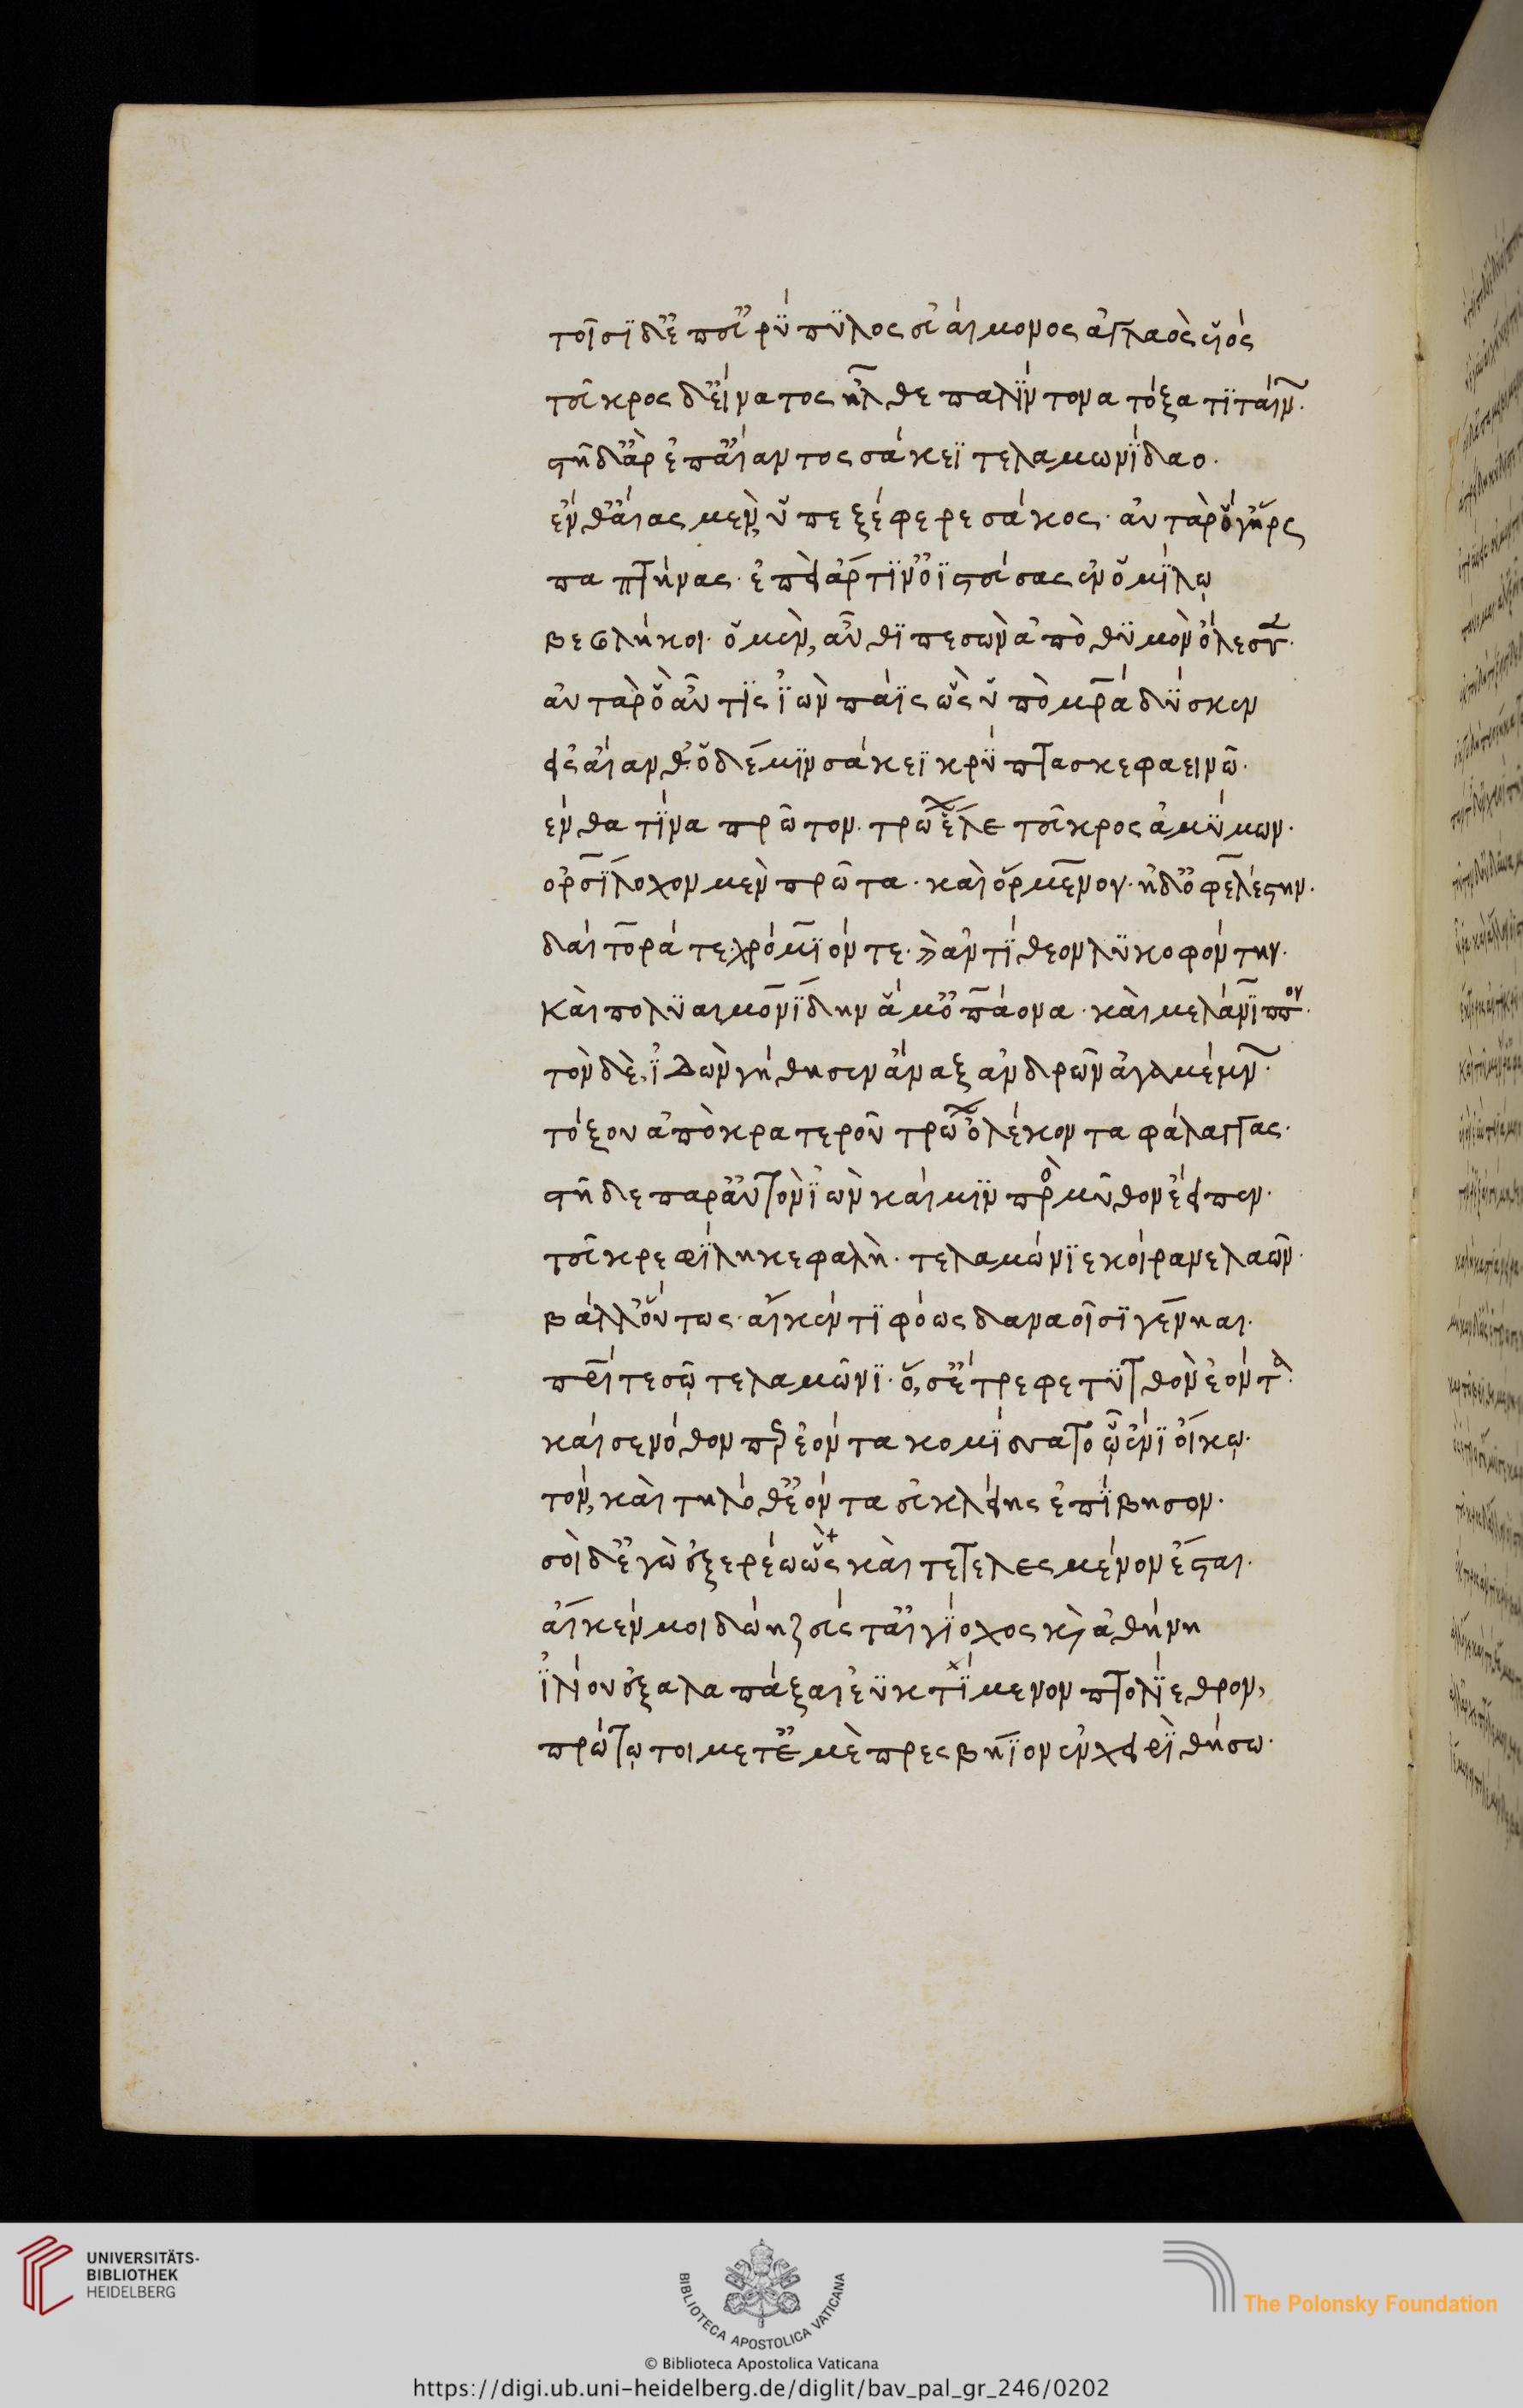 τοῖσι δ' ἐπ' εὐρύπυλος εὐαίμονος ἀγλαὸς υἱός
τεῦκρος δ' εἴνατος ἦλθε παλίντονα τόξα τιταίνων.
στῆ δ' ἄρ' ἐπ' αἴαντος σάκεϊ τελαμωνιδαο.
ἔνθ' αἴας μὲν, ὑπεξέφερε σάκος· αὐτὰρ ὅγ' ἥρως
παπτήνας· ἐπεὶ ἄρ τιν' ὀϊστεύσας ἐν ὁμίλῳ
βεβλήκοι· ὁ μὲν, αὖθι πεσὼν ἀπὸ θυμὸν ὄλεσκεν·
αὐτὰρ ὁ αὖτις ἰὼν πάϊς ὣς ὑπὸ μητέρα δύσκεν
εἰς αἴανθ'· ὁ δέ μιν σάκεϊ κρύπτασκε φαεινῶ·
ἔνθα τίνα πρῶτον τρώων ἕλε τεῦκρος ἀμύμων·
ὀρσίλοχον μὲν πρῶτα· καὶ ὄρμενον· ἠδ' ὀφελέστην·
δαίτορά τε· χρόμιόν τε· καὶ ἀντίθεον λυκοφόντην·
Καὶ πολυαιμονίδην ἀμοπάονα· καὶ μελάνιππον·
τὸν δὲ, ἰδὼν γήθησεν ἄναξ ἀνδρῶν ἀγαμέμνων·
τόξου ἀπὸ κρατεροῦ τρώων ὀλέκοντα φάλαγγας·
στῆ δὲ παρ' αὐτὸν ἰὼν καί μιν πρὸς μῦθον ἔειπεν·
τεῦκρε φίλη κεφαλὴ· τελαμώνιε κοίρανε λαῶν·
βάλλ' οὕτως· αἴ κέν τι φόως δαναοῖσι γένηαι·
πατρί τε σῷ τελαμῶνι· ὅ, σ' ἔτρεφε τυτθὸν ἐόντα·
καί σε νόθον περ ἐόντα κομίσσατο ᾧ ἐνὶ οἴκῳ·
τὸν, καὶ τηλόθ' ἐόντα εὐκλείης ἐπίβησον·
σοὶ δ' ἐγὼ ἐξερέω ὡς καὶ τετελεσμένον ἔσται·
αἴ κέν μοι δώη ζεύς τ' αἰγίοχος καὶ ἀθήνη
ἰλίου ἐξαλαπάξαι ἐϋκτίμενον πτολίεθρον,
πρώτῳ τοι μετ' ἐμὲ πρεσβήϊον ἐν χειρὶ θήσω·
UNIVERSITÄTS-
BIBLIOTHEK
HEIDELBERG
BIBLIOTECA APOSTOLICA VATICANA
© Biblioteca Apostolica Vaticana
The Polonsky Foundation
https://digi.ub.uni-heidelberg.de/diglit/bav_pal_gr_246/0202